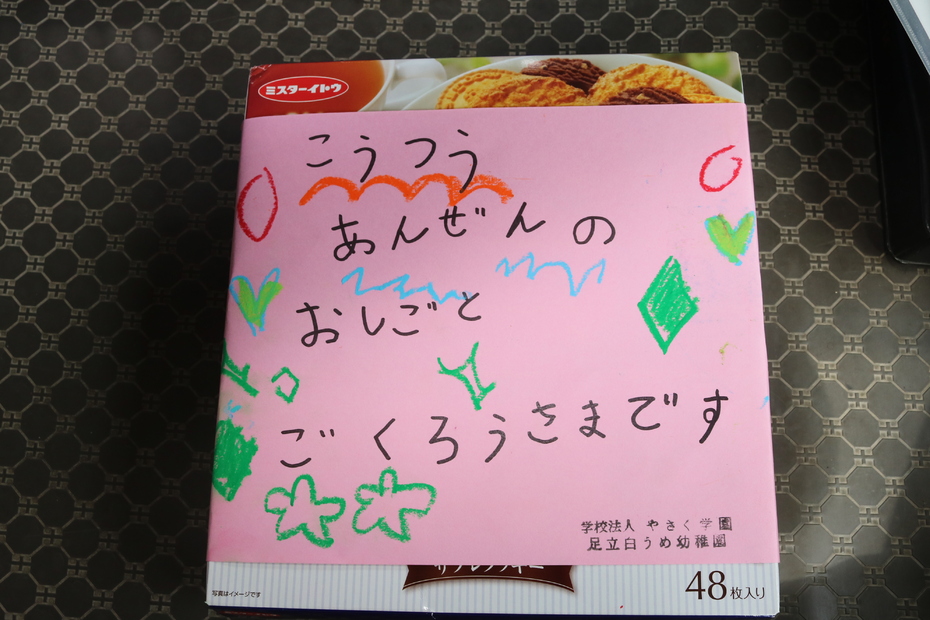 ミスターイトウ
こうつう
あんぜんの
おしごと
ごくろうさまです
学校法人 やさく学園
足立白うめ幼稚園
写真はイメージです
48枚入り